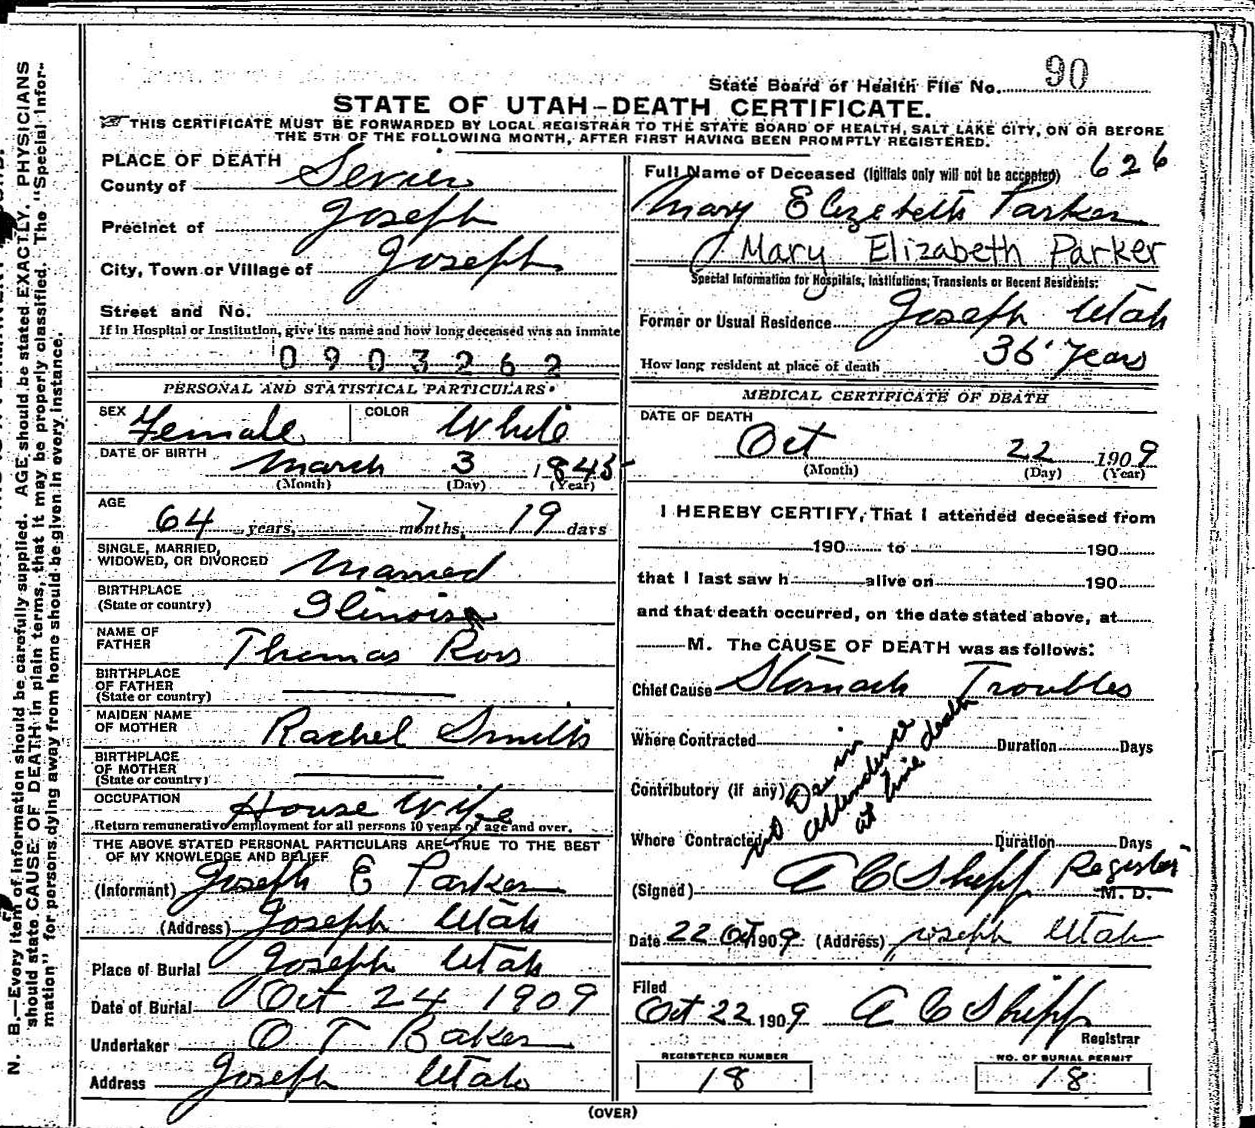 State Board of Health File No. 90
STATE OF UTAH—DEATH CERTIFICATE.
THIS CERTIFICATE MUST BE FORWARDED BY LOCAL REGISTRAR TO THE STATE BOARD OF HEALTH, SALT LAKE CITY, ON OR BEFORE
THE 5TH OF THE FOLLOWING MONTH, AFTER FIRST HAVING BEEN PROMPTLY REGISTERED.
PLACE OF DEATH
County of Sevier
Precinct of Joseph
City, Town or Village of Joseph
Street and No.
If in Hospital or Institution, give its name and how long deceased was an inmate
0903262
PERSONAL AND STATISTICAL PARTICULARS
SEX Female COLOR White
DATE OF BIRTH March 3 1845
(Month) (Day) (Year)
AGE 64 years, 7 months, 19 days
SINGLE, MARRIED,
WIDOWED, OR DIVORCED Married
BIRTHPLACE
(State or country) Ilinois
NAME OF
FATHER Thomas Ross
BIRTHPLACE
OF FATHER
(State or country)
MAIDEN NAME
OF MOTHER Rachel Smith
BIRTHPLACE
OF MOTHER
(State or country)
OCCUPATION House Wife
Return remunerative employment for all persons 10 years of age and over.
THE ABOVE STATED PERSONAL PARTICULARS ARE TRUE TO THE BEST
OF MY KNOWLEDGE AND BELIEF
(Informant) Joseph E Parker
(Address) Joseph Utah
Place of Burial Joseph Utah
Date of Burial Oct 24 1909
Undertaker O T Baker
Address Joseph Utah
626
Full Name of Deceased (Initials only will not be accepted)
Mary Elizebeth Parker
Mary Elizabeth Parker
Special Information for Hospitals, Institutions, Transients or Recent Residents:
Former or Usual Residence Joseph Utah
How long resident at place of death 36 Years
MEDICAL CERTIFICATE OF DEATH
DATE OF DEATH
Oct 22 1909
(Month) (Day) (Year)
I HEREBY CERTIFY, That I attended deceased from
190 to 190
that I last saw h alive on 190
and that death occurred, on the date stated above, at
M. The CAUSE OF DEATH was as follows:
Chief Cause Stomach Troubles
Where Contracted Duration Days
Contributory (if any)
Where Contracted Duration Days
no Dr in
attendence
at time death
(Signed) A C Shipp Register
M. D.
Date 22 Oct 1909 (Address) Joseph Utah
Filed
Oct 22 1909 A C Shipp
Registrar
REGISTERED NUMBER
18
NO. OF BURIAL PERMIT
18
(OVER)
N. B.—Every item of information should be carefully supplied. AGE should be stated EXACTLY. PHYSICIANS
should state CAUSE OF DEATH in plain terms, that it may be properly classified. The "Special Infor-
mation" for persons dying away from home should be given in every instance.